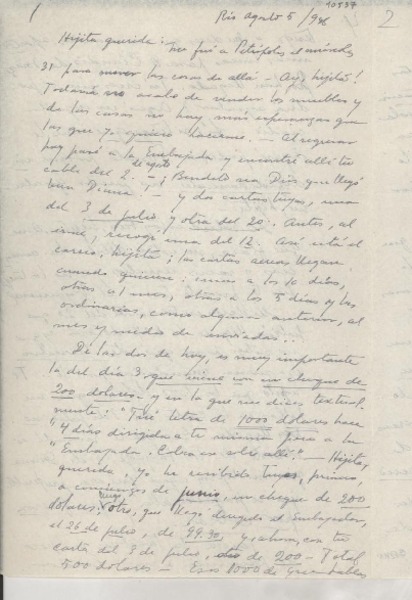 10537
1
2
Río agosto 5/946
Hijita querida: Me fuí a Petrópolis el miércoles
31 para mover las cosas de allá - Ay, hijita!
Todavía no acabo de vender los muebles y
de las casas no hay más esperanzas que
las que yo quiero hacerme. - Al regresar
hoy pasé a la Embajada y encontré allí tu
cable del 2. - ¡Bendito sea Dios que llegó
una Dinne! - y dos cartas tuyas, una
del 3 de julio y otra del 20. Antes, al
irme, recogí una del 12. Así está el
correo, hijita; las cartas aéreas llegan
cuando quieren: unas a los 10 días,
otras al mes, otras a los 5 días y las
ordinarias, como alguna anterior, al
mes y medio de enviadas...
De las dos de hoy, es muy importante
la del día 3, que viene con un cheque de
200 dolares - y en la que me dices textual-
mente: "Tu letra de 1000 dolares hace
"4 días dirigida a ti misma para a la
"Embajada. Cobra en sobre allí" - Hijita,
querida, yo he recibido tuyos, primero,
a comienzos de junio, un cheque de 200
dolares; otro, que llegó dirigido al Embajador,
el 26 de julio, de 99.90, y ahora, con tu
carta del 3 de julio, de 200 - Total
500 dolares - Esos 1000 de que hablas